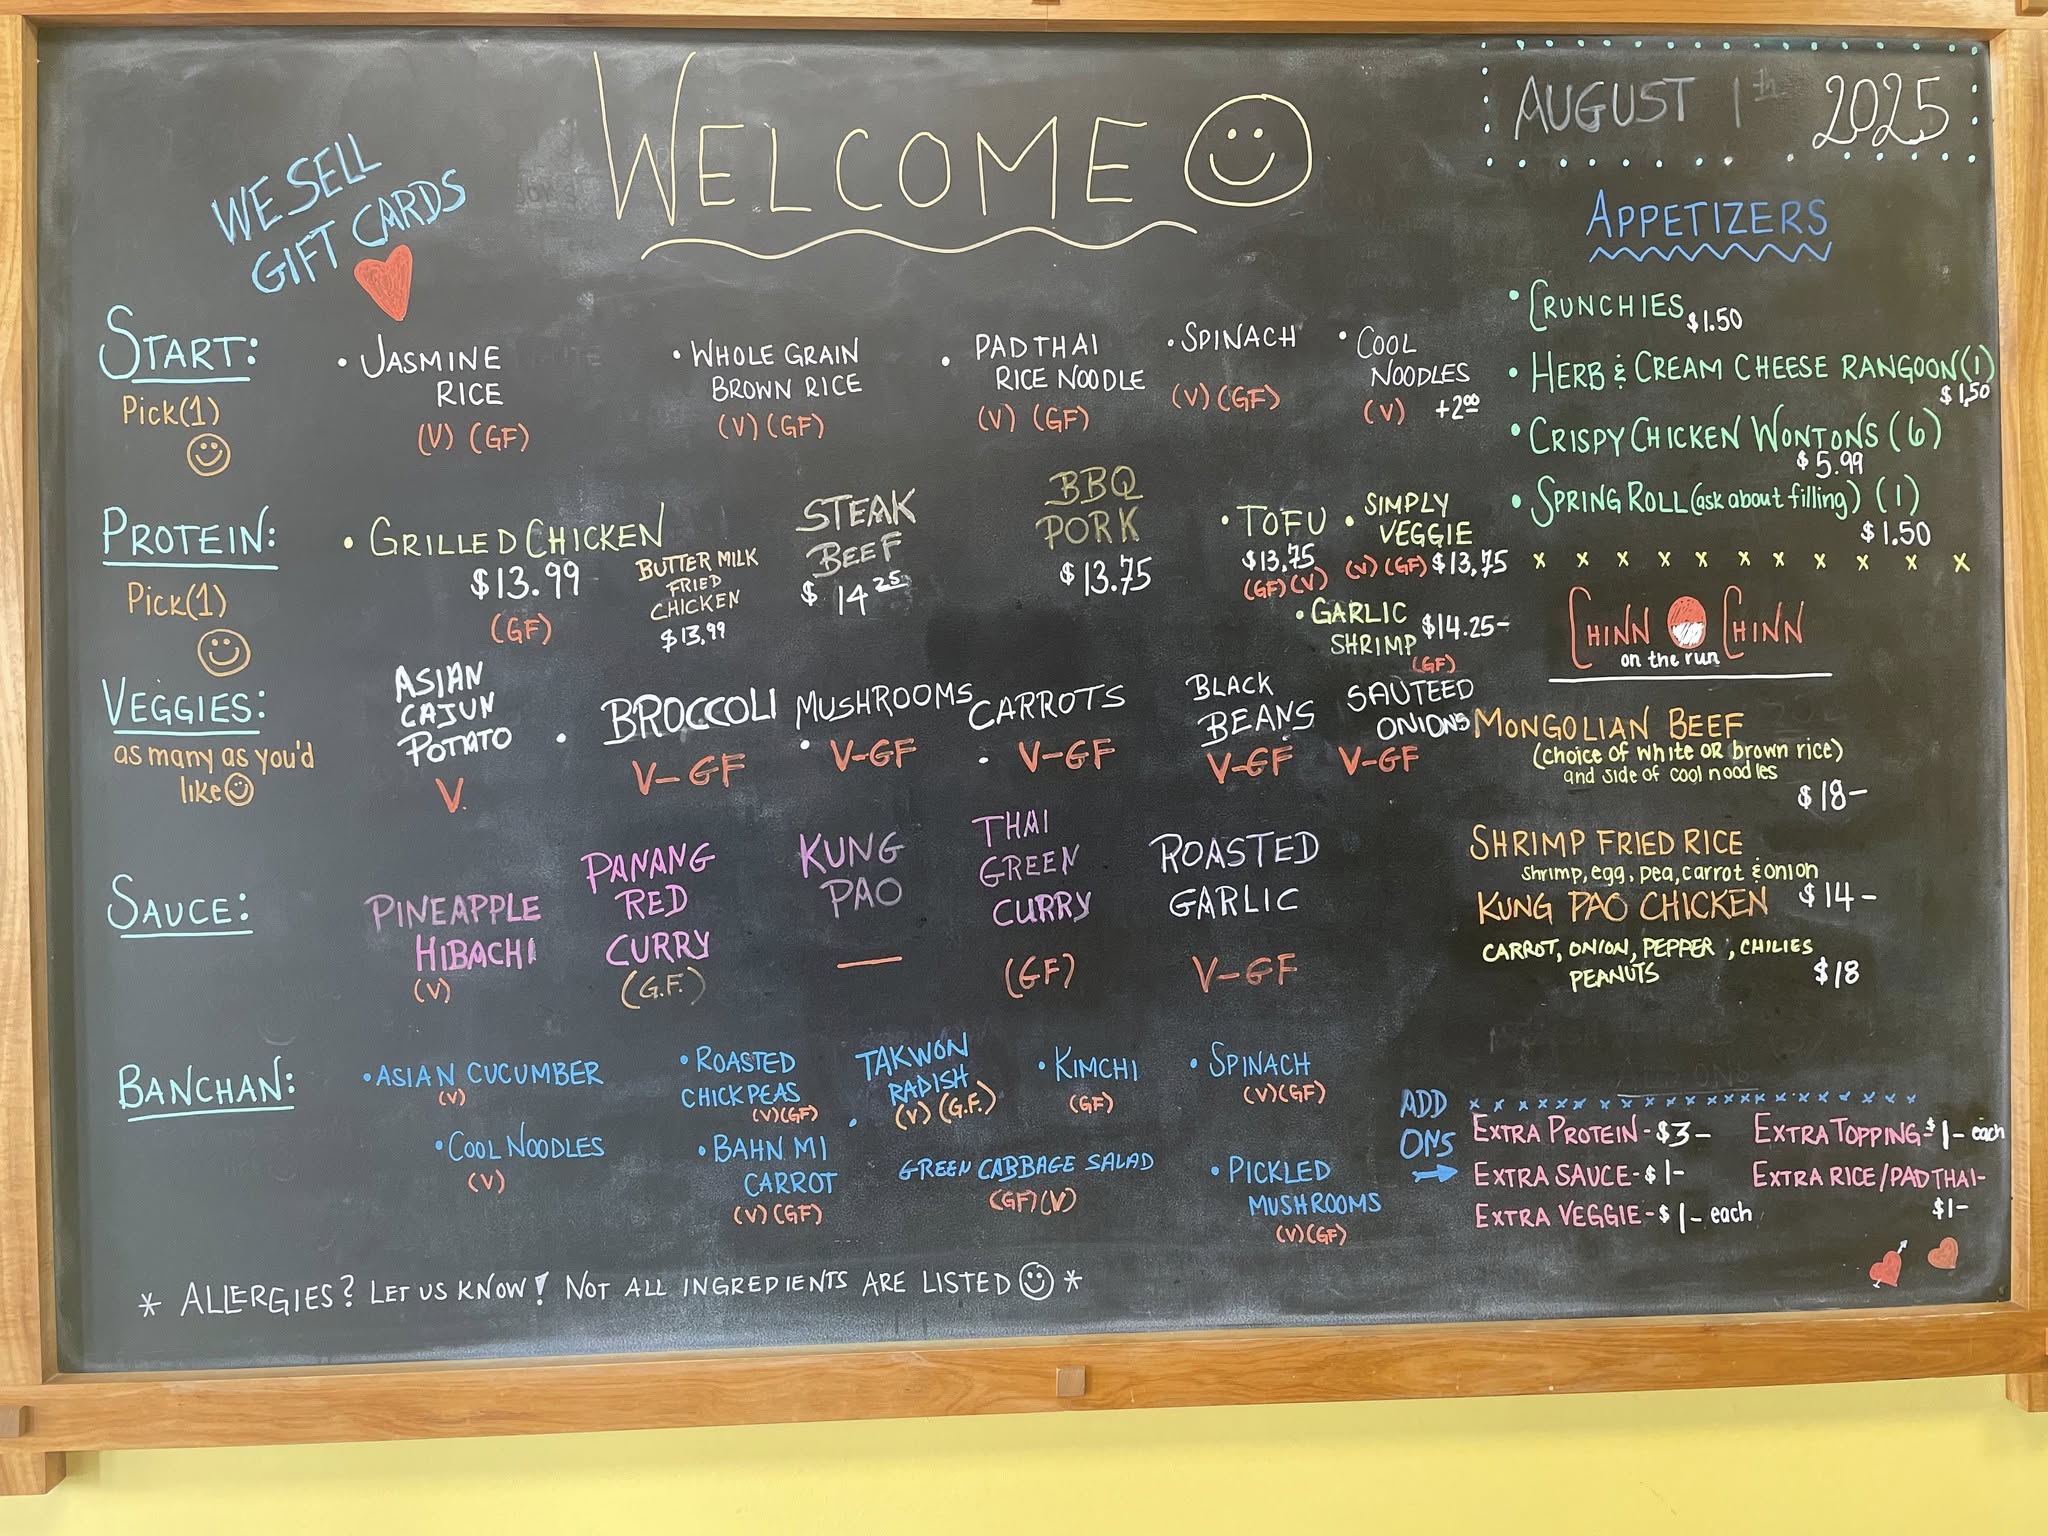 WELCOME
AUGUST 1th 2025
WE SELL
GIFT CARDS
START:
Pick(1)
• JASMINE
RICE
(V) (GF)
• WHOLE GRAIN
BROWN RICE
(V) (GF)
• PAD THAI
RICE NOODLE
(V) (GF)
• SPINACH
(V) (GF)
• COOL
NOODLES
(V) +2⁰⁰
PROTEIN:
Pick(1)
• GRILLED CHICKEN
$13.99
(GF)
BUTTER MILK
FRIED
CHICKEN
$13.99
STEAK
BEEF
$ 14²⁵
BBQ
PORK
$13.75
• TOFU
$13.75
(GF)(V)
• SIMPLY
VEGGIE
(V)(GF) $13.75
• GARLIC
SHRIMP $14.25-
(GF)
VEGGIES:
as many as you'd
like
ASIAN
CAJUN
POTATO
V.
• BROCCOLI
V-GF
MUSHROOMS
• V-GF
CARROTS
• V-GF
BLACK
BEANS
V-GF
SAUTEED
ONIONS
V-GF
SAUCE:
PINEAPPLE
HIBACHI
(V)
PANANG
RED
CURRY
(G.F.)
KUNG
PAO
—
THAI
GREEN
CURRY
(GF)
ROASTED
GARLIC
V-GF
BANCHAN:
• ASIAN CUCUMBER
(V)
• ROASTED
CHICKPEAS
(V)(GF)
TAKWON
RADISH
• (V) (G.F.)
• KIMCHI
(GF)
• SPINACH
(V)(GF)
• COOL NOODLES
(V)
• BAHN MI
CARROT
(V)(GF)
GREEN CABBAGE SALAD
(GF)(V)
• PICKLED
MUSHROOMS
(V)(GF)
* ALLERGIES? LET US KNOW! NOT ALL INGREDIENTS ARE LISTED *
APPETIZERS
• CRUNCHIES $1.50
• HERB & CREAM CHEESE RANGOON (1)
$1.50
• CRISPY CHICKEN WONTONS (6)
$5.99
• SPRING ROLL (ask about filling) (1)
$1.50
x x x x x x x x x x x
CHINN CHINN
on the run
MONGOLIAN BEEF
(choice of white OR brown rice)
and side of cool noodles
$18-
SHRIMP FRIED RICE
shrimp, egg, pea, carrot & onion
$14-
KUNG PAO CHICKEN
CARROT, ONION, PEPPER, CHILIES
PEANUTS $18
ADD
ONS
→
EXTRA PROTEIN - $3-
EXTRA SAUCE - $1-
EXTRA VEGGIE - $1- each
EXTRA TOPPING - $1- each
EXTRA RICE/PAD THAI-
$1-